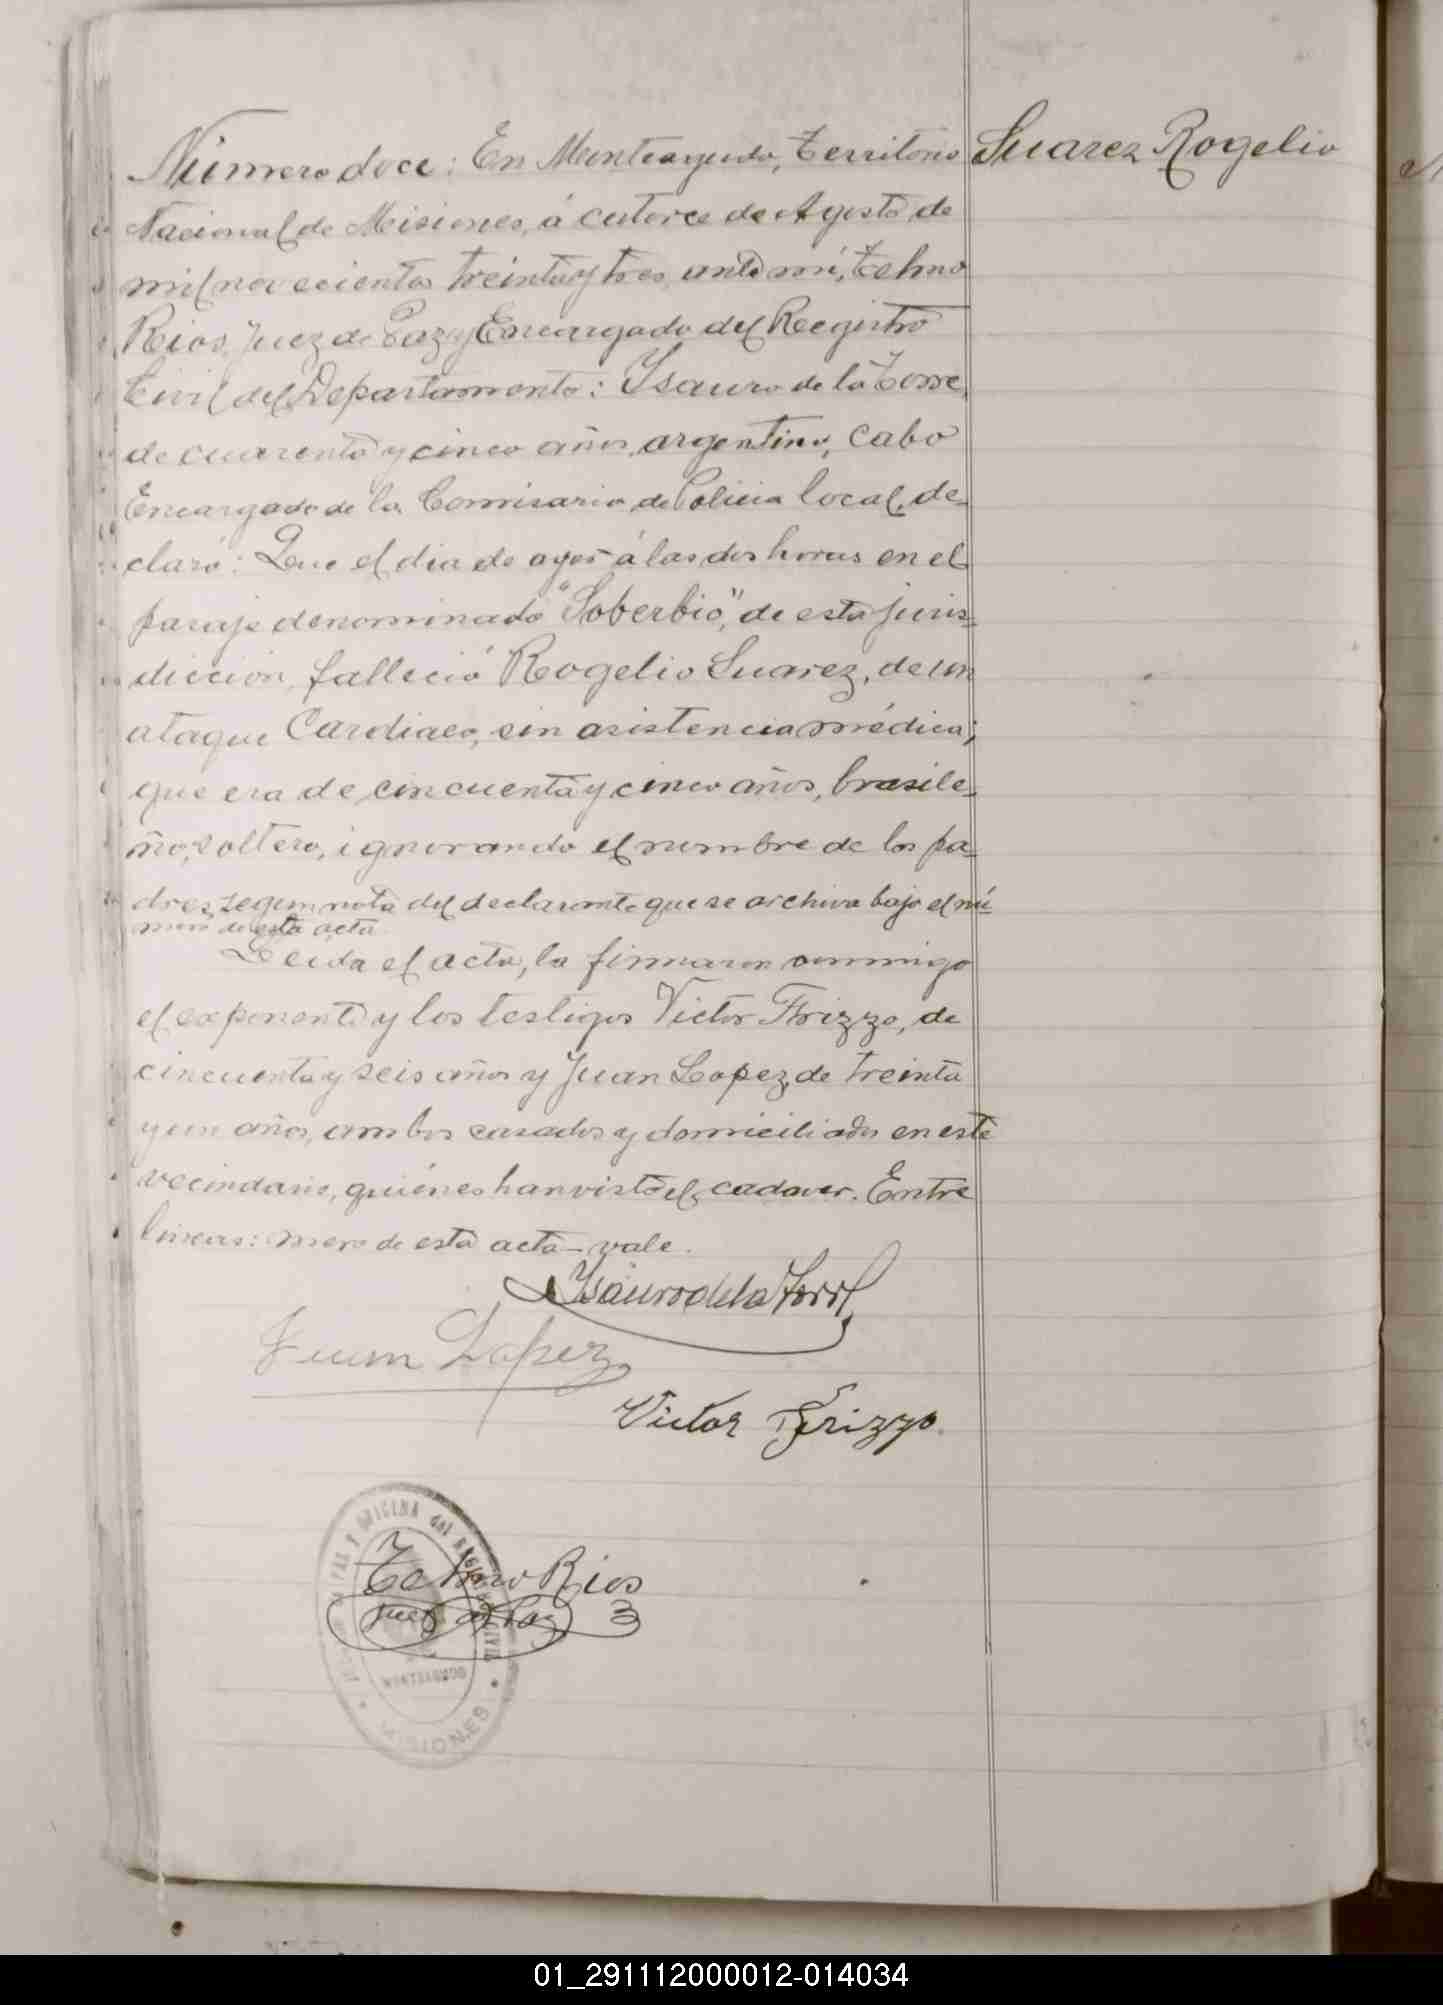 Número doce: En Monteagudo, Territorio
Suarez Rogelio
Nacional de Misiones, á catorce de Agosto de
mil novecientos treinta y tres, ante mí, Telmo
Rios, Juez de Paz y Encargado del Registro
Civil del Departamento: Ysauro de la Torre,
de cuarenta y cinco años, argentino, Cabo
Encargado de la Comisaria de Policia local, de-
claró: Que el dia de ayer á las dos horas en el
paraje denominado "Soberbio", de esta juris-
dicción, falleció Rogelio Suarez, de un
ataque Cardiaco, sin asistencia médica;
que era de cincuenta y cinco años, brasile-
ño, soltero, ignorando el nombre de los pa-
dres, segun nota del declarante que se archiva bajo el nú-
mero de esta acta.
Leida el acta, la firmaron conmigo
el exponente y los testigos Victor Frizzo, de
cincuenta y seis años y Juan Lopez, de treinta
y un años, ambos casados y domiciliados en este
vecindario, quiénes han visto el cadaver. Entre
lineas: mero de esta acta - vale.
Ysauro de la Torre
Juan Lopez
Victor Frizzo.
Telmo Rios
Juez de Paz
PAZ Y OFICINA del REGISTRO CIVIL
MONTEAGUDO
MISIONES
01_291112000012-014034